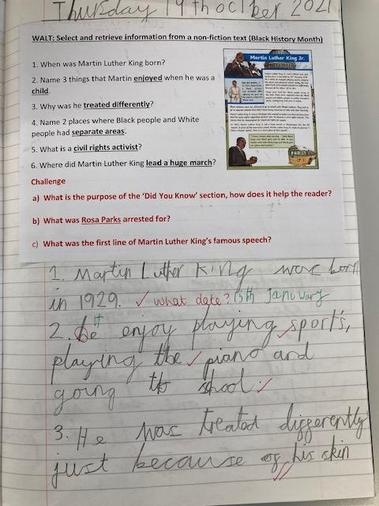 Thursday 19th october 2021
WALT: Select and retrieve information from a non-fiction text (Black History Month)
Martin Luther King Jr.
1. When was Martin Luther King born?
2. Name 3 things that Martin enjoyed when he was a
child.
3. Why was he treated differently?
4. Name 2 places where Black people and White
people had separate areas.
5. What is a civil rights activist?
6. Where did Martin Luther King lead a huge march?
Challenge
a) What is the purpose of the 'Did You Know' section, how does it help the reader?
b) What was Rosa Parks arrested for?
c) What was the first line of Martin Luther King's famous speech?
1. Martin Luther King was born
in 1929. ✓ what date? 15th January
2. He enjoy playing sport's,
playing the piano and
going to shool.
3. He was treated differently
just because of his skin